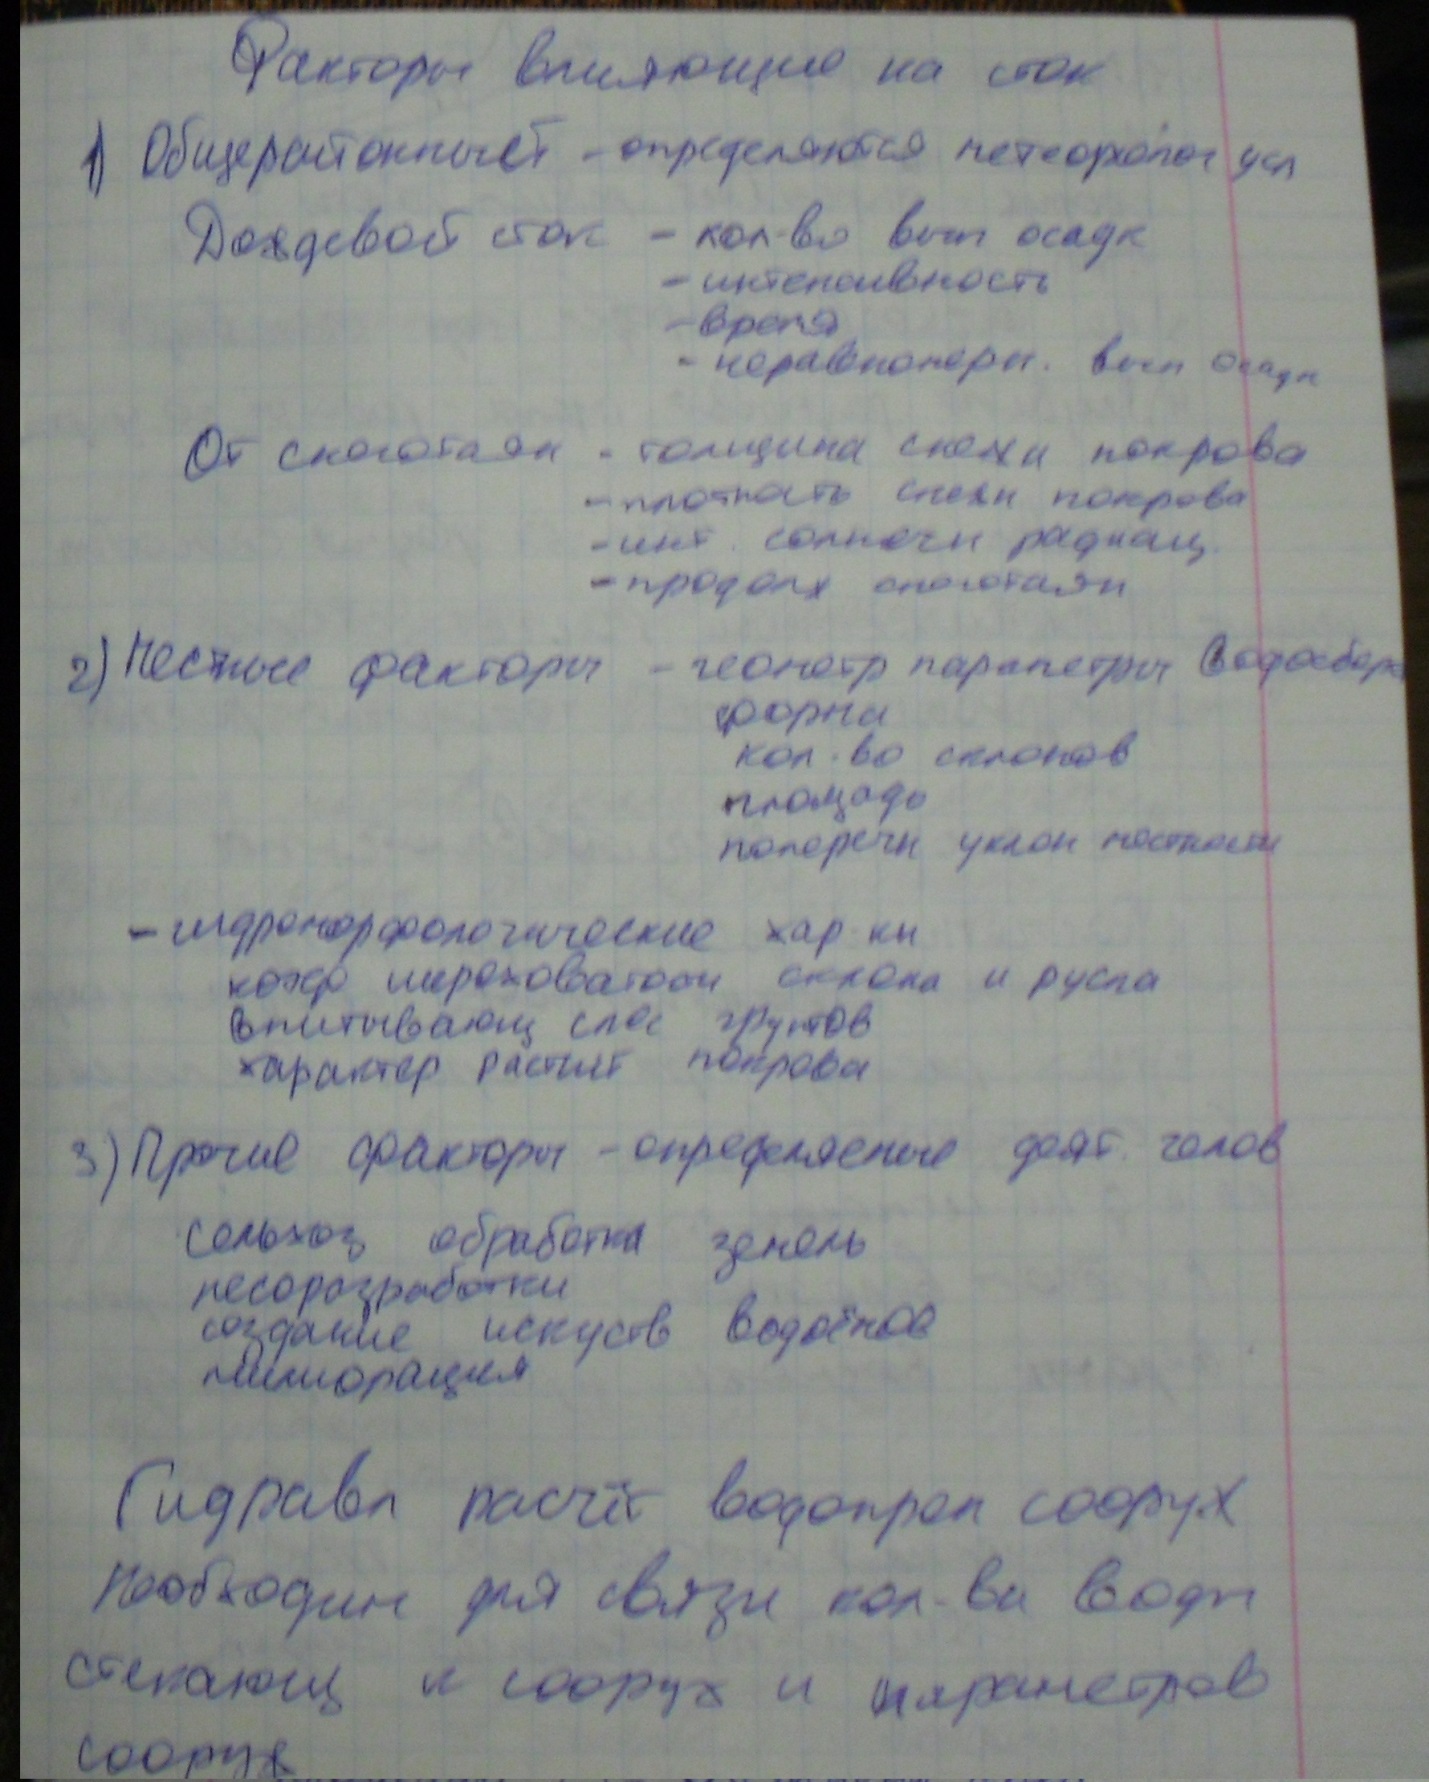 Факторы влияющие на сток
1) Общерайонный - определяются метеоролог усл
Дождевой сток - кол-во вып осадк
- интенсивность
- время
- неравномерн. вып осадк
От снеготаян - толщина снежн покрова
- плотность снежн покрова
- инт. солнечн радиац.
- продолж снеготаян
2) Местные факторы - геометр параметры водосбора
форма
кол-во склонов
площадь
поперечн уклон местности
- гидроморфологические хар-ки
коэф шероховатости склона и русла
впитывающ спос грунтов
характер растит покрова
3) Прочие факторы - определяемые деят. челов
сельхоз обработка земель
лесоразработки
создание искуств водоёмов
мелиорация
Гидравл расчёт водопроп сооруж
Необходим для связи кол-ва воды
стекающ к сооруж и параметров
сооруж